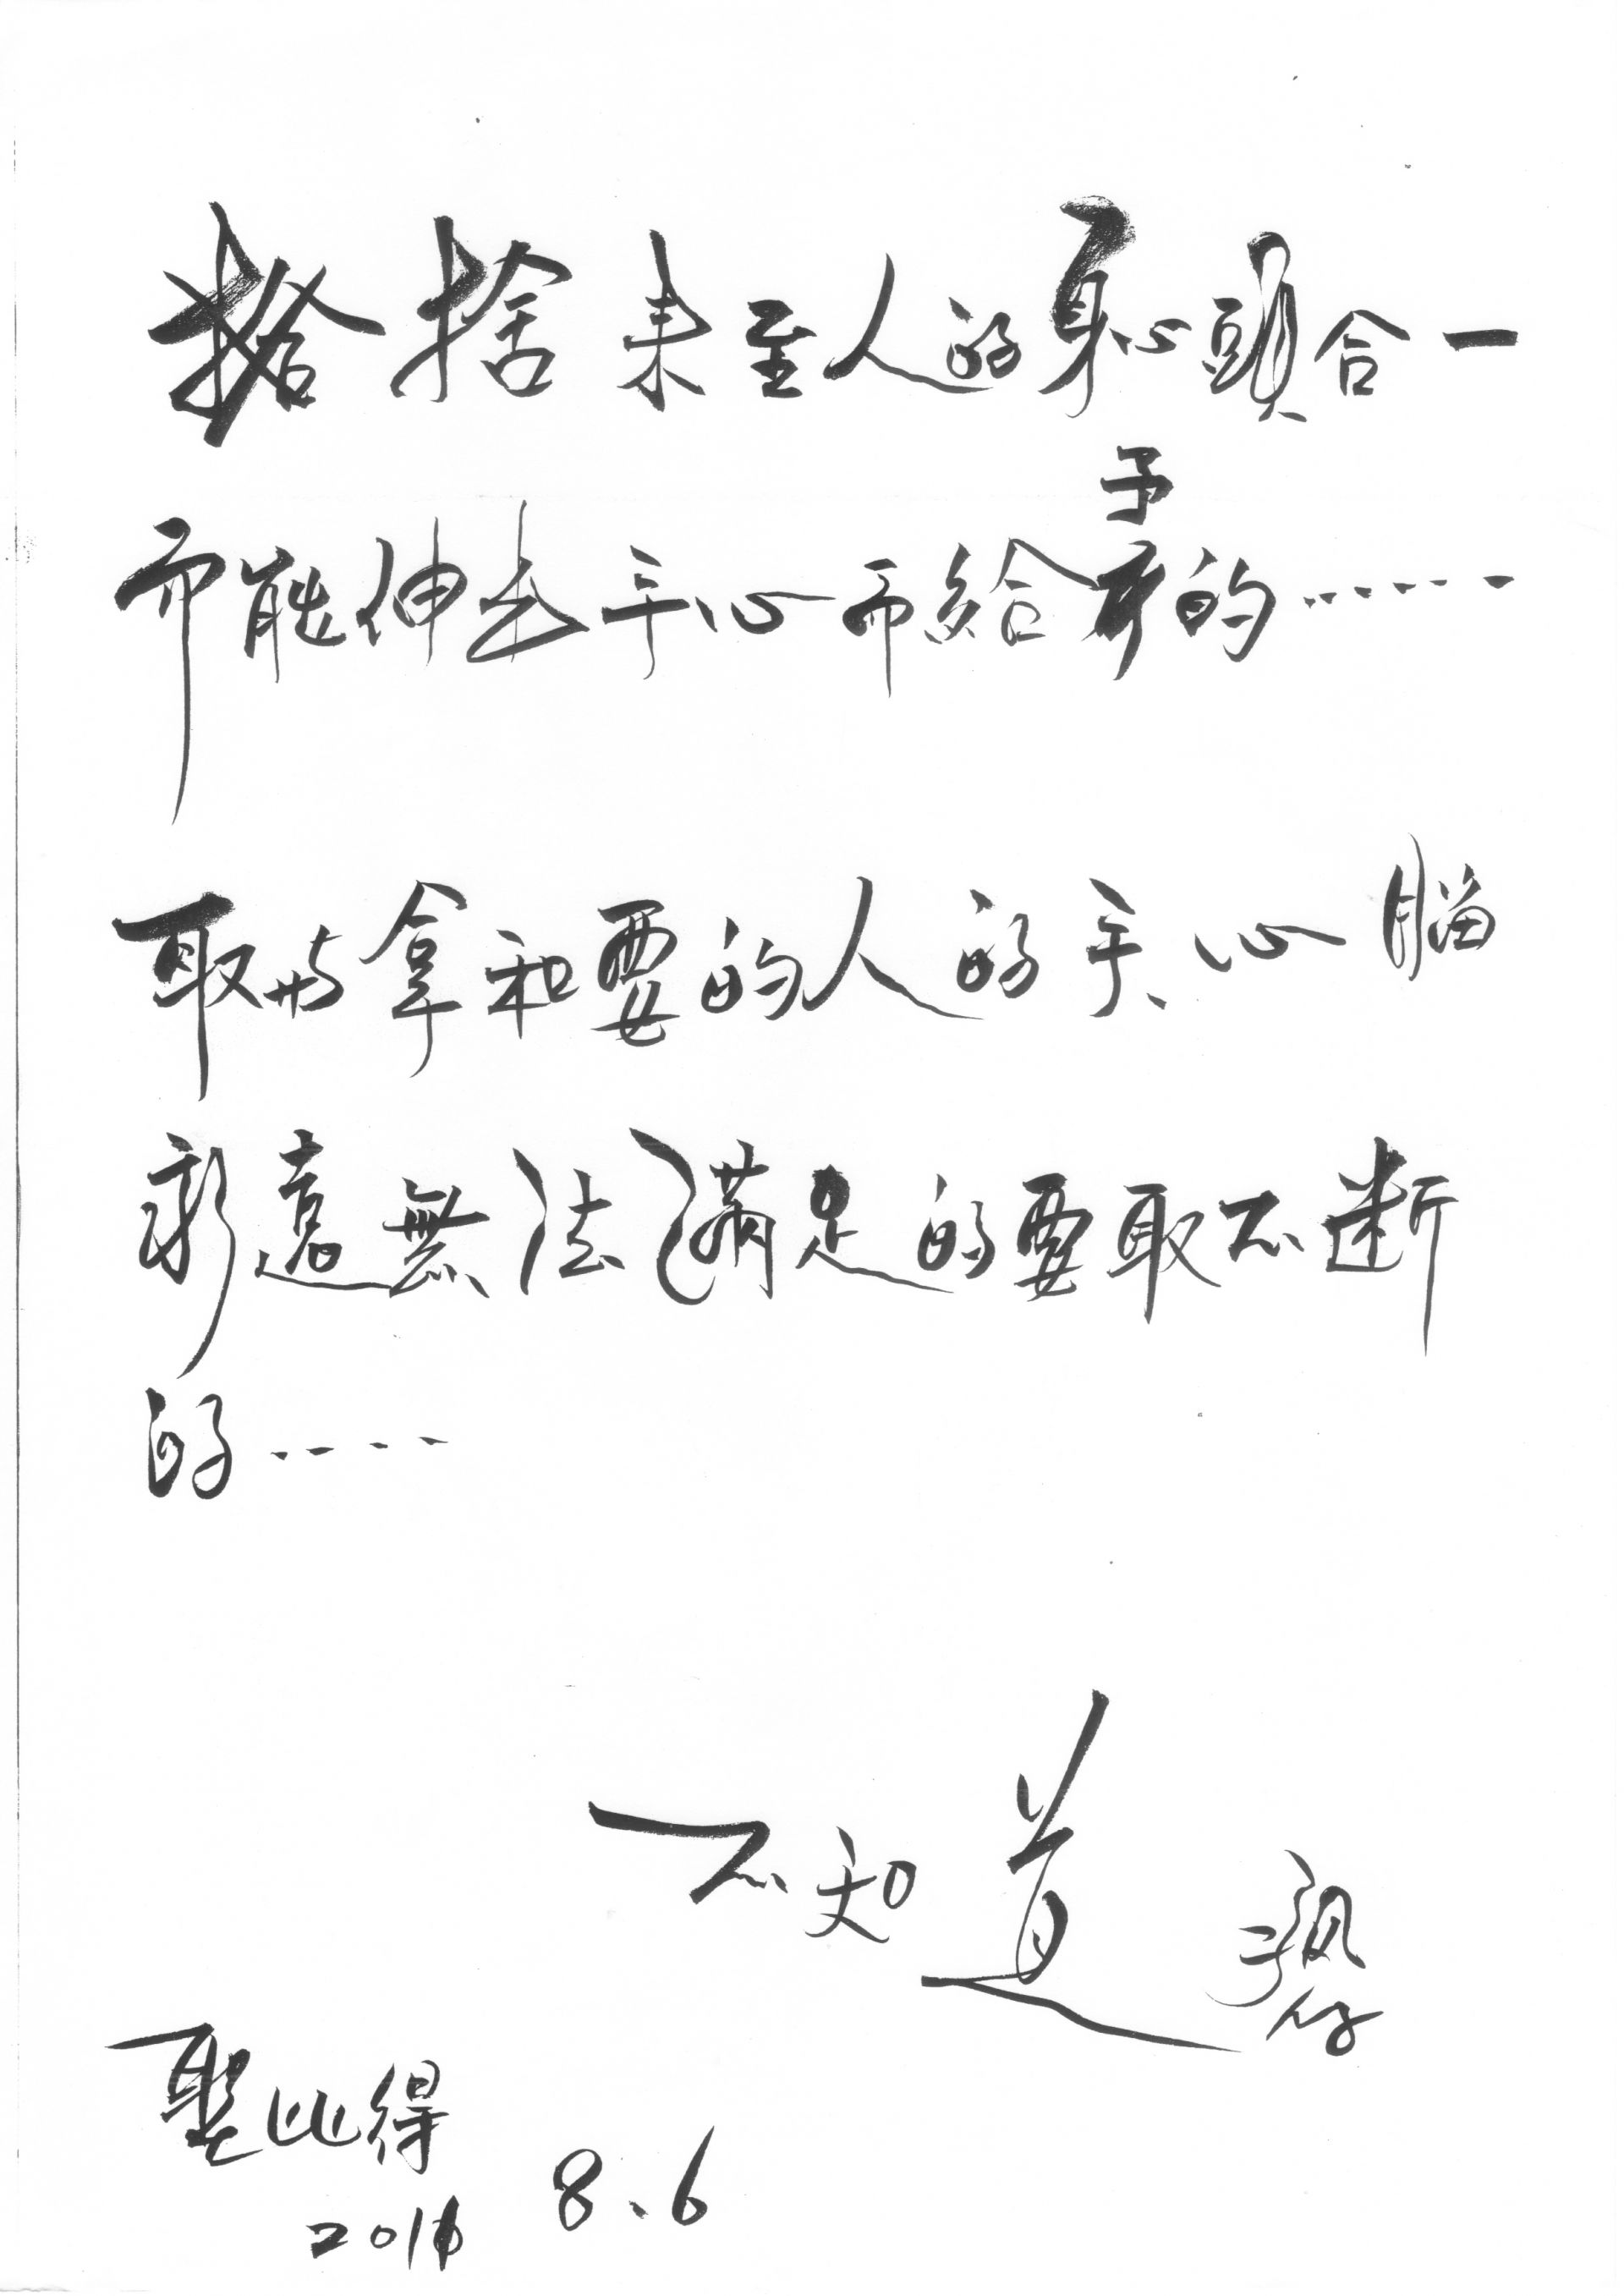 捨 捨 来至人的身心頭合一
予
而能伸去手心而給的……
取与拿和要的人的手、心腦
永遠無法滿足的要取不断
的……
不知道
聖比得
8、6